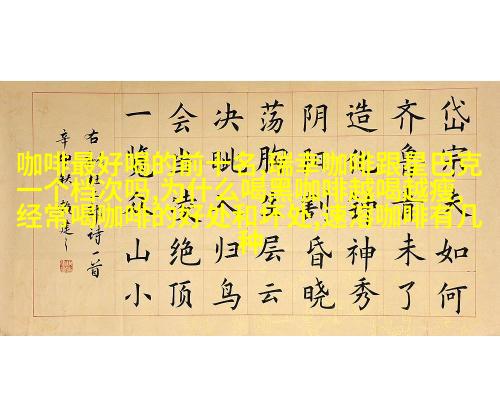 咖啡最好喝的前十名,瑞幸咖啡跟星巴克
一个档次吗,为什么喝黑咖啡越喝越瘦,
经常喝咖啡的好处和坏处,速溶咖啡有几
种
岱宗夫如何
齐鲁青未了
造化钟神秀
阴阳割昏晓
荡胸生层云
决眦入归鸟
会当凌绝顶
一览众山小
右诗一首